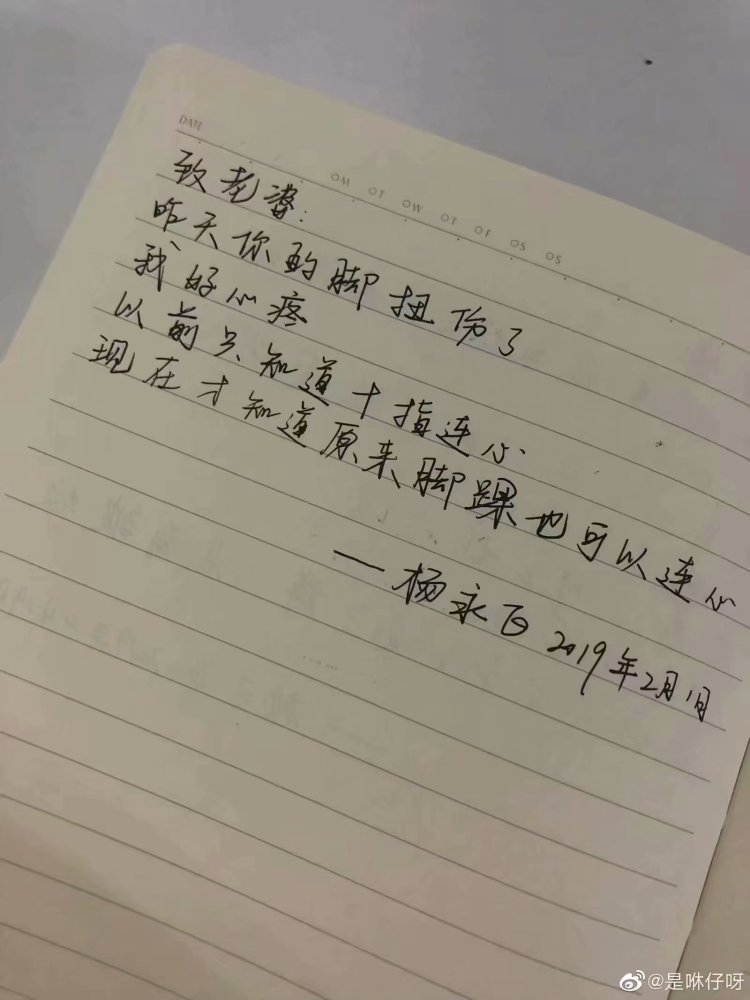 DATE
OM OT OW OT OF OS OS
致老婆:
昨天你的脚扭伤了
我好心疼
以前只知道十指连心
现在才知道原来脚踝也可以连心
——杨永 2019年2月1日
@是咻仔呀